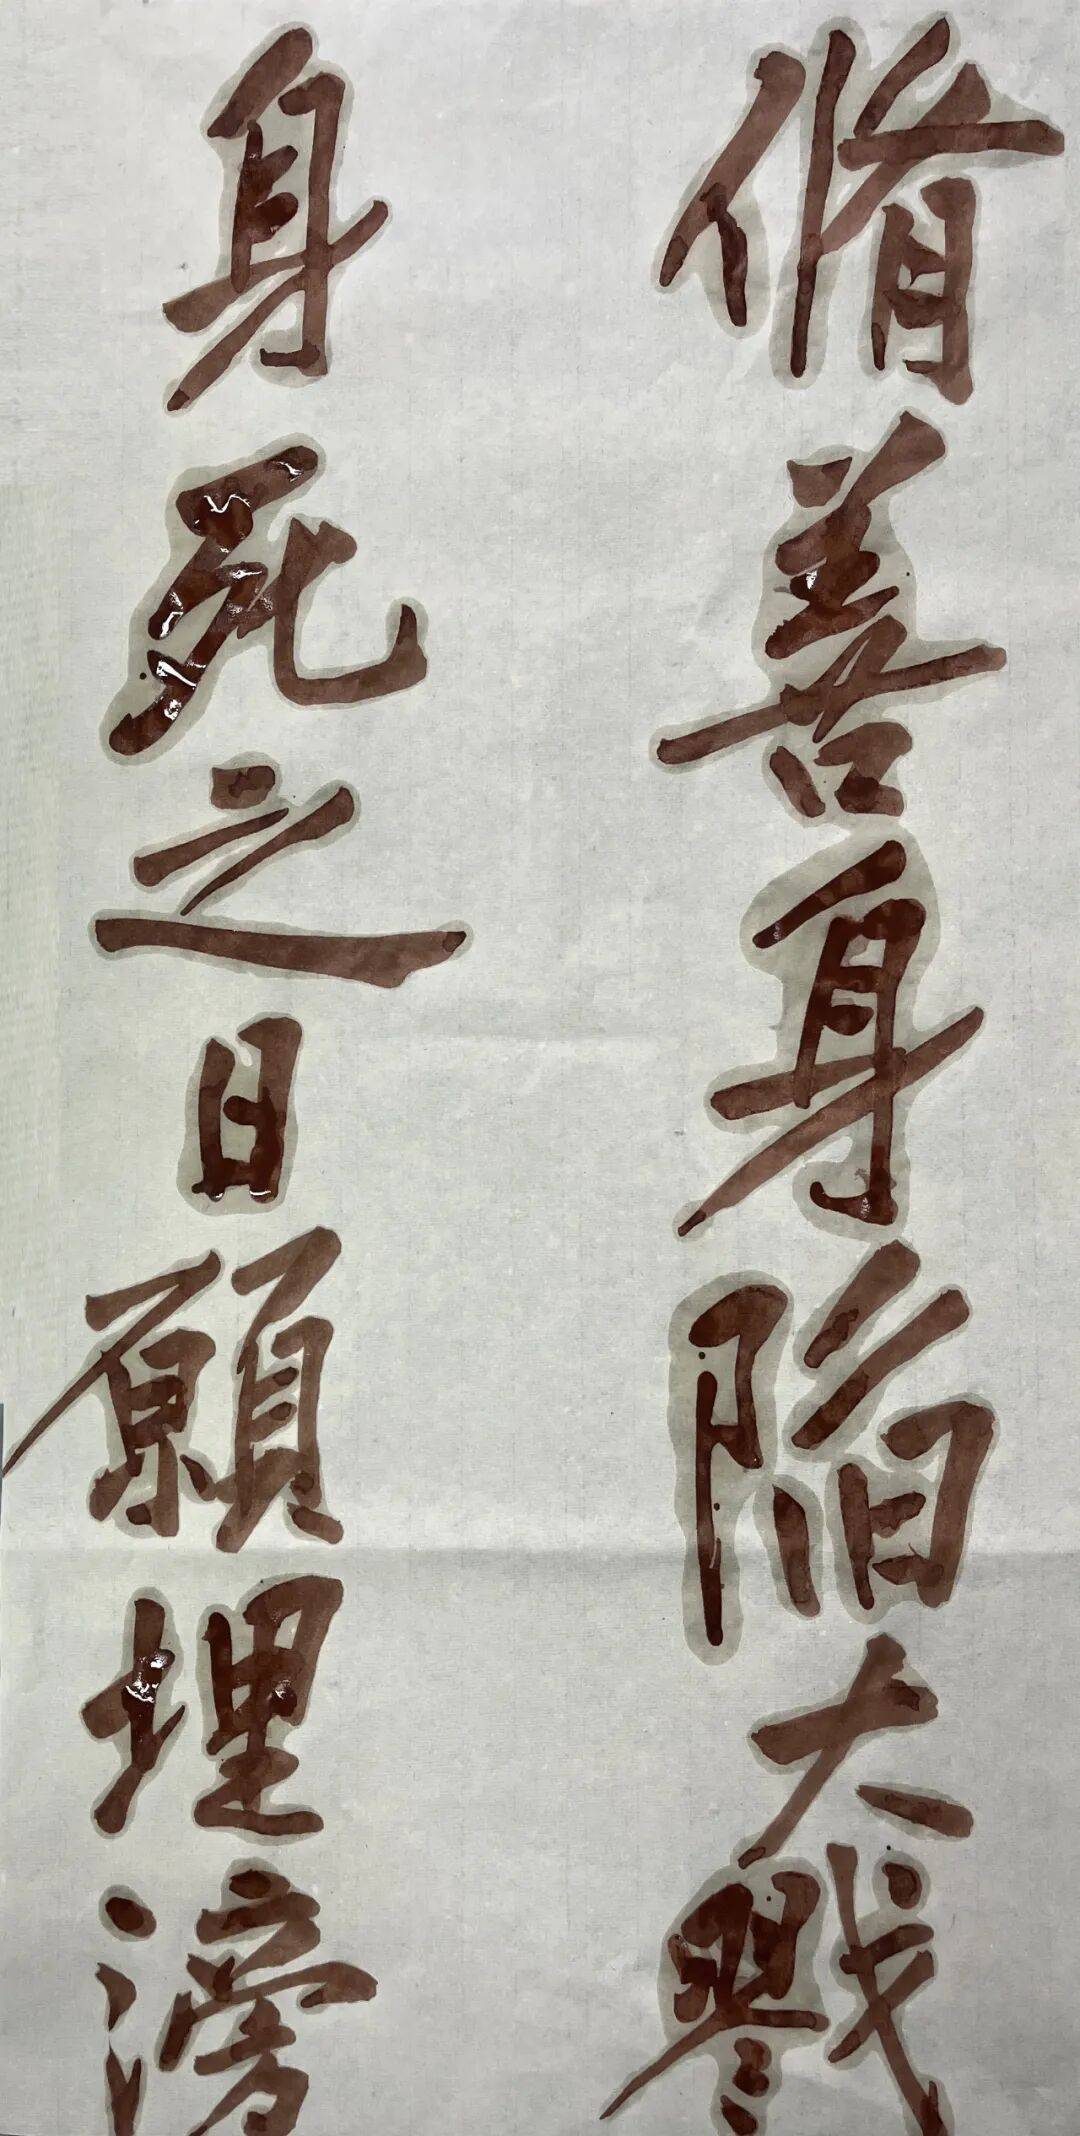 脩善身陷大戮
身死之日願埋滂